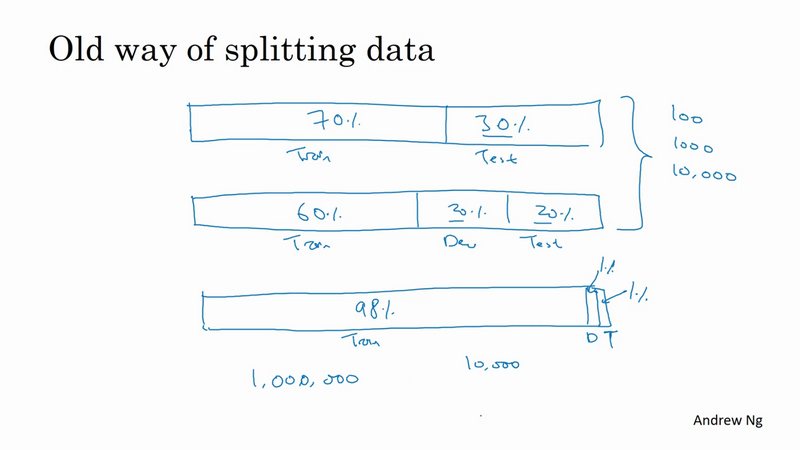 Old way of splitting data
70% 30%
Train Test
100
1000
10,000
60% 20% 20%
Train Dev Test
1% 1%
98%
Train D T
1,000,000 10,000
Andrew Ng